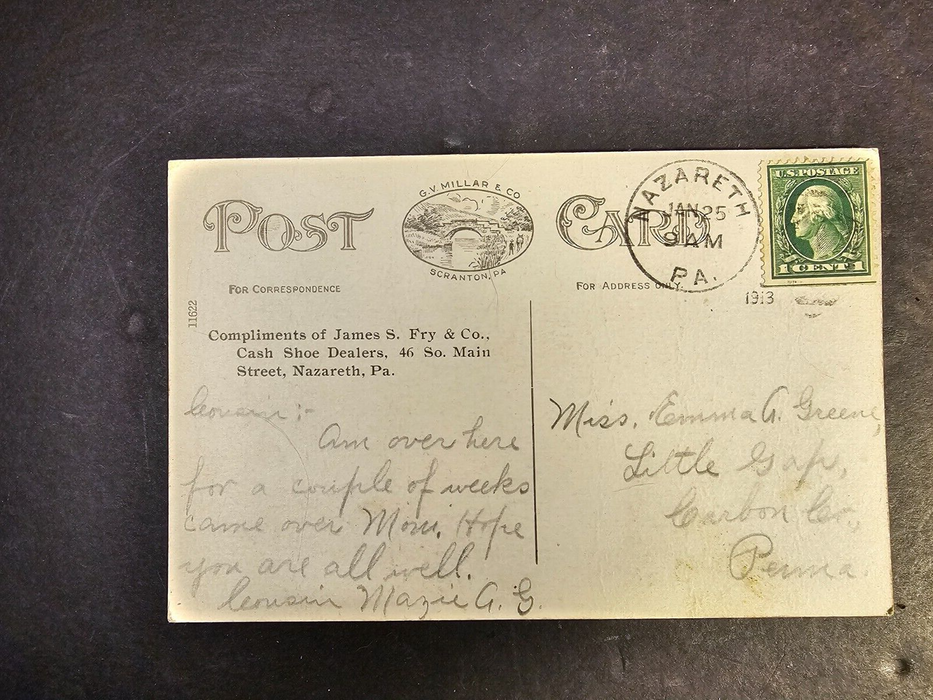 POST CARD
G.V. MILLAR & CO
SCRANTON, PA
NAZARETH
JAN 25
9 AM
PA.
1913
U.S. POSTAGE
1 CENT 1
FOR CORRESPONDENCE
FOR ADDRESS ONLY.
11622
Compliments of James S. Fry & Co.,
Cash Shoe Dealers, 46 So. Main
Street, Nazareth, Pa.
Cousin :-
Am over here
for a couple of weeks
came over Mon. Hope
you are all well.
Cousin Mazie A. G.
Miss. Emma A. Greene,
Little Gap,
Carbon Co.,
Penna.